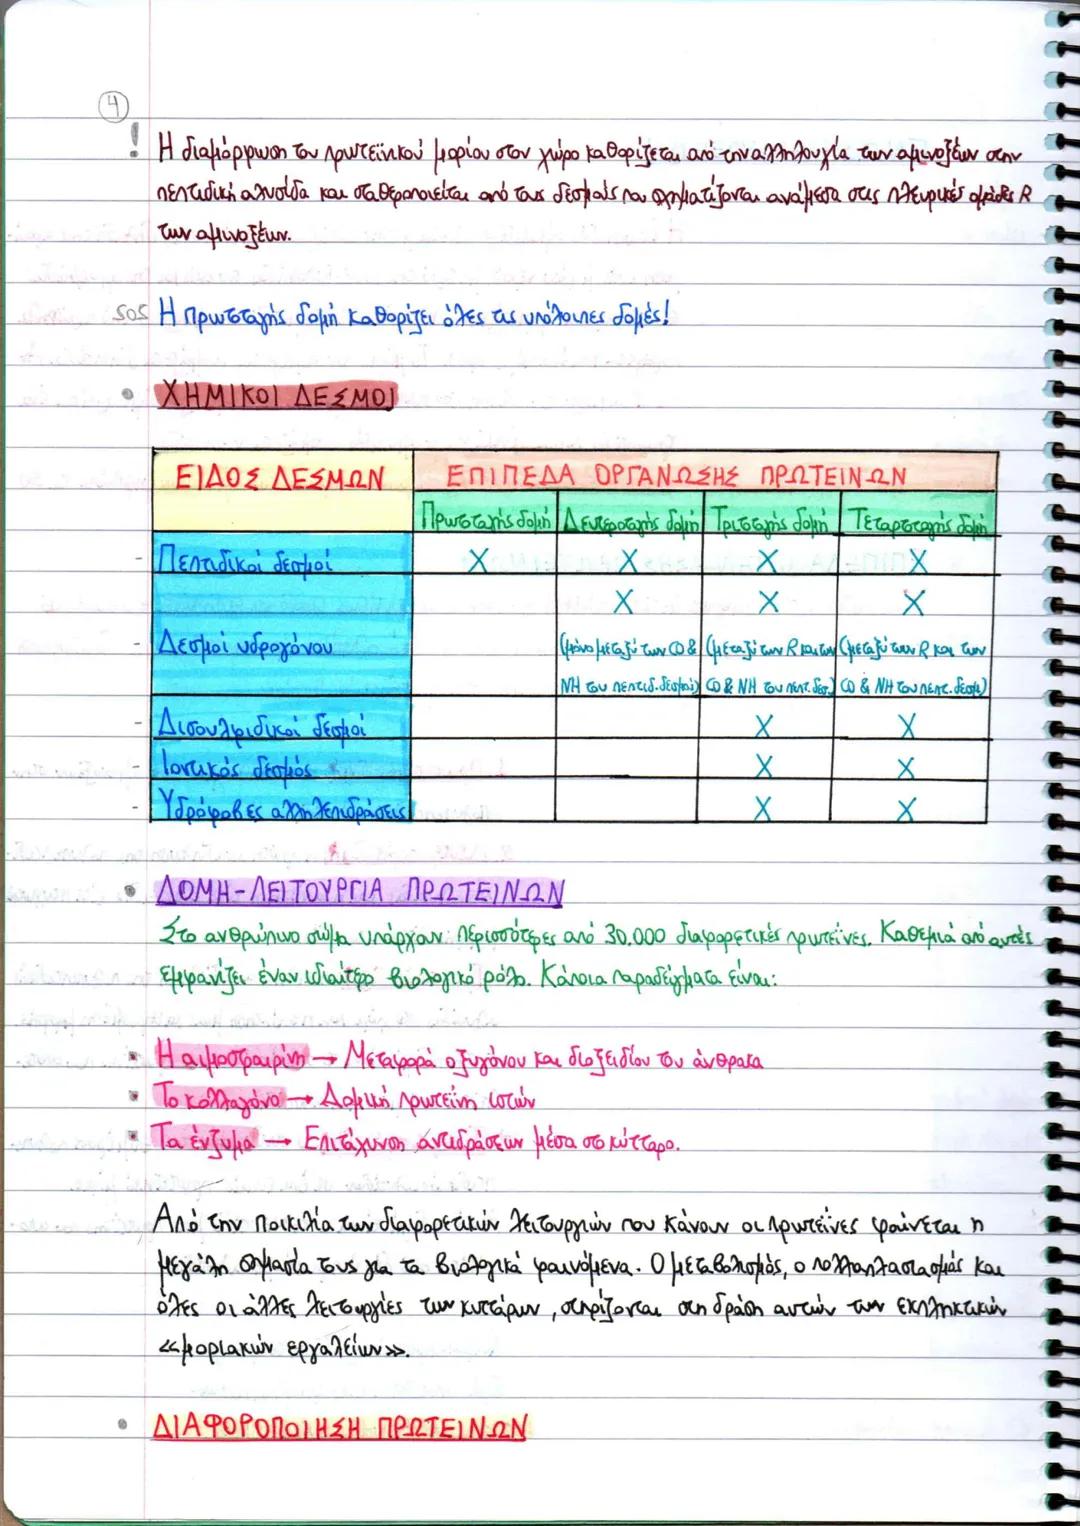 4
! Η διαμόρφωση του πρωτεϊνικού μορίου στον χώρο καθορίζεται από την αλληλουχία των αμινοξέων στην
πεπτιδική αλυσίδα και σταθεροποιείται από τους δεσμούς που σχηματίζονται ανάμεσα στις πλευρικές ομάδες R
των αμινοξέων.
SOS Η πρωτοταγής δομή καθορίζει όλες τις υπόλοιπες δομές!
• ΧΗΜΙΚΟΙ ΔΕΣΜΟΙ
ΕΙΔΟΣ ΔΕΣΜΩΝ ΕΠΙΠΕΔΑ ΟΡΓΑΝΩΣΗΣ ΠΡΩΤΕΙΝΩΝ
Πρωτοταγής δομή Δευτεροταγής δομή Τριτοταγής δομή Τεταρτοταγής δομή
- Πεπτιδικοί δεσμοί X X X X
X X X
- Δεσμοί υδρογόνου (μόνο μεταξύ των CO & (μεταξύ των R και των (μεταξύ των R και των
NH του πεπτιδ. δεσμού) CO & NH του πεπτ. δεσ.) CO & NH του πεπτ. δεσμ.)
- Δισουλφιδικοί δεσμοί X X
- Ιοντικός δεσμός X X
- Υδρόφοβες αλληλεπιδράσεις X X
• ΔΟΜΗ-ΛΕΙΤΟΥΡΓΙΑ ΠΡΩΤΕΙΝΩΝ
Στο ανθρώπινο σώμα υπάρχουν περισσότερες από 30.000 διαφορετικές πρωτεΐνες. Καθεμιά από αυτές
εμφανίζει έναν ιδιαίτερο βιολογικό ρόλο. Κάποια παραδείγματα είναι:
▪ Η αιμοσφαιρίνη → Μεταφορά οξυγόνου και διοξειδίου του άνθρακα
▪ Το κολλαγόνο → Δομική πρωτεΐνη ιστών
▪ Τα ένζυμα → Επιτάχυνση αντιδράσεων μέσα στο κύτταρο.
Από την ποικιλία των διαφορετικών λειτουργιών που κάνουν οι πρωτεΐνες φαίνεται η
μεγάλη σημασία τους για τα βιολογικά φαινόμενα. Ο μεταβολισμός, ο πολλαπλασιασμός και
όλες οι άλλες λειτουργίες των κυττάρων, στηρίζονται στη δράση αυτών των εκπληκτικών
«μοριακών εργαλείων».
• ΔΙΑΦΟΡΟΠΟΙΗΣΗ ΠΡΩΤΕΙΝΩΝ